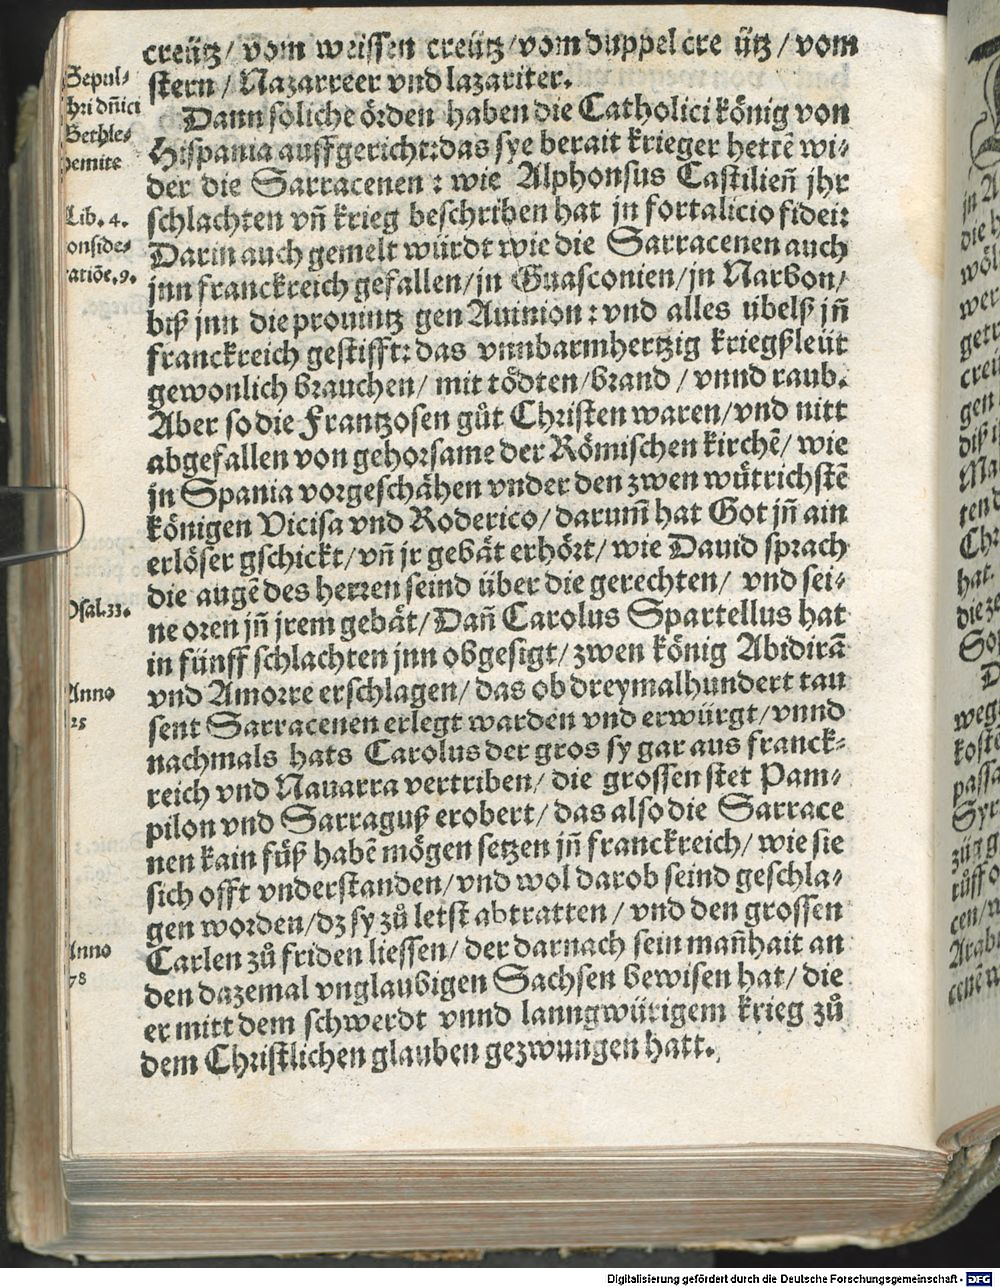 creütz/ vom weissen creütz/vom duppel cre ütz / vom
stern / Nazarreer vnd lazariter.
Dann soliche örden haben die Catholici könig von
Hispania auffgericht:das sye berait krieger hettē wi-
der die Sarracenen : wie Alphonsus Castilien̄ jhr
schlachten vn̄ krieg beschriben hat jn fortalicio fidei:
Darin auch gemelt würdt wie die Sarracenen auch
jnn franckreich gefallen/jn Guasconien/jn Narbon/
biß jnn die prouintz gen Auinion : vnd alles übelß jn̄
franckreich gestifft:das vnnbarmhertzig kriegßleüt
gewonlich brauchen/ mit tödten/brand / vnnd raub.
Aber so die Frantzosen gůt Christen waren/vnd nitt
abgefallen von gehorsame der Römischen kirchē/ wie
jn Spania vorgeschähen vnder den zwen wütrichstē
königen Vicisa vnd Roderico/ darum̄ hat Got jn̄ ain
erlöser gschickt/ vn̄ jr gebät erhört/ wie Dauid sprach
die augē des herren seind über die gerechten/ vnd sei-
ne oren jn̄ jrem gebät/ Dan̄ Carolus Spartellus hat
in fünff schlachten jnn obgesigt/ zwen könig Abidirā
vnd Amorre erschlagen/ das ob dreymalhundert tau
sent Sarracenen erlegt warden vnd erwürgt/ vnnd
nachmals hats Carolus der gros sy gar aus franck-
reich vnd Nauarra vertriben/ die grossen stet Pam-
pilon vnd Sarraguß erobert/ das also die Sarrace
nen kain fůß habē mögen setzen jn̄ franckreich/ wie sie
sich offt vnderstanden/ vnd wol darob seind geschla-
gen worden/dz sy zů letst abtratten / vnd den grossen
Carlen zů friden liessen/ der darnach sein man̄hait an
den dazemal vnglaubigen Sachsen bewisen hat/ die
er mitt dem schwerdt vnnd lanngwürigem krieg zů
dem Christlichen glauben gezwungen hatt.
Sepul-
hri dn̄ici
Bethle-
hemite
Lib. 4.
onside-
ratiōe.9.
Psal.33.
Anno
25
Anno
78
Digitalisierung gefördert durch die Deutsche Forschungsgemeinschaft - DFG